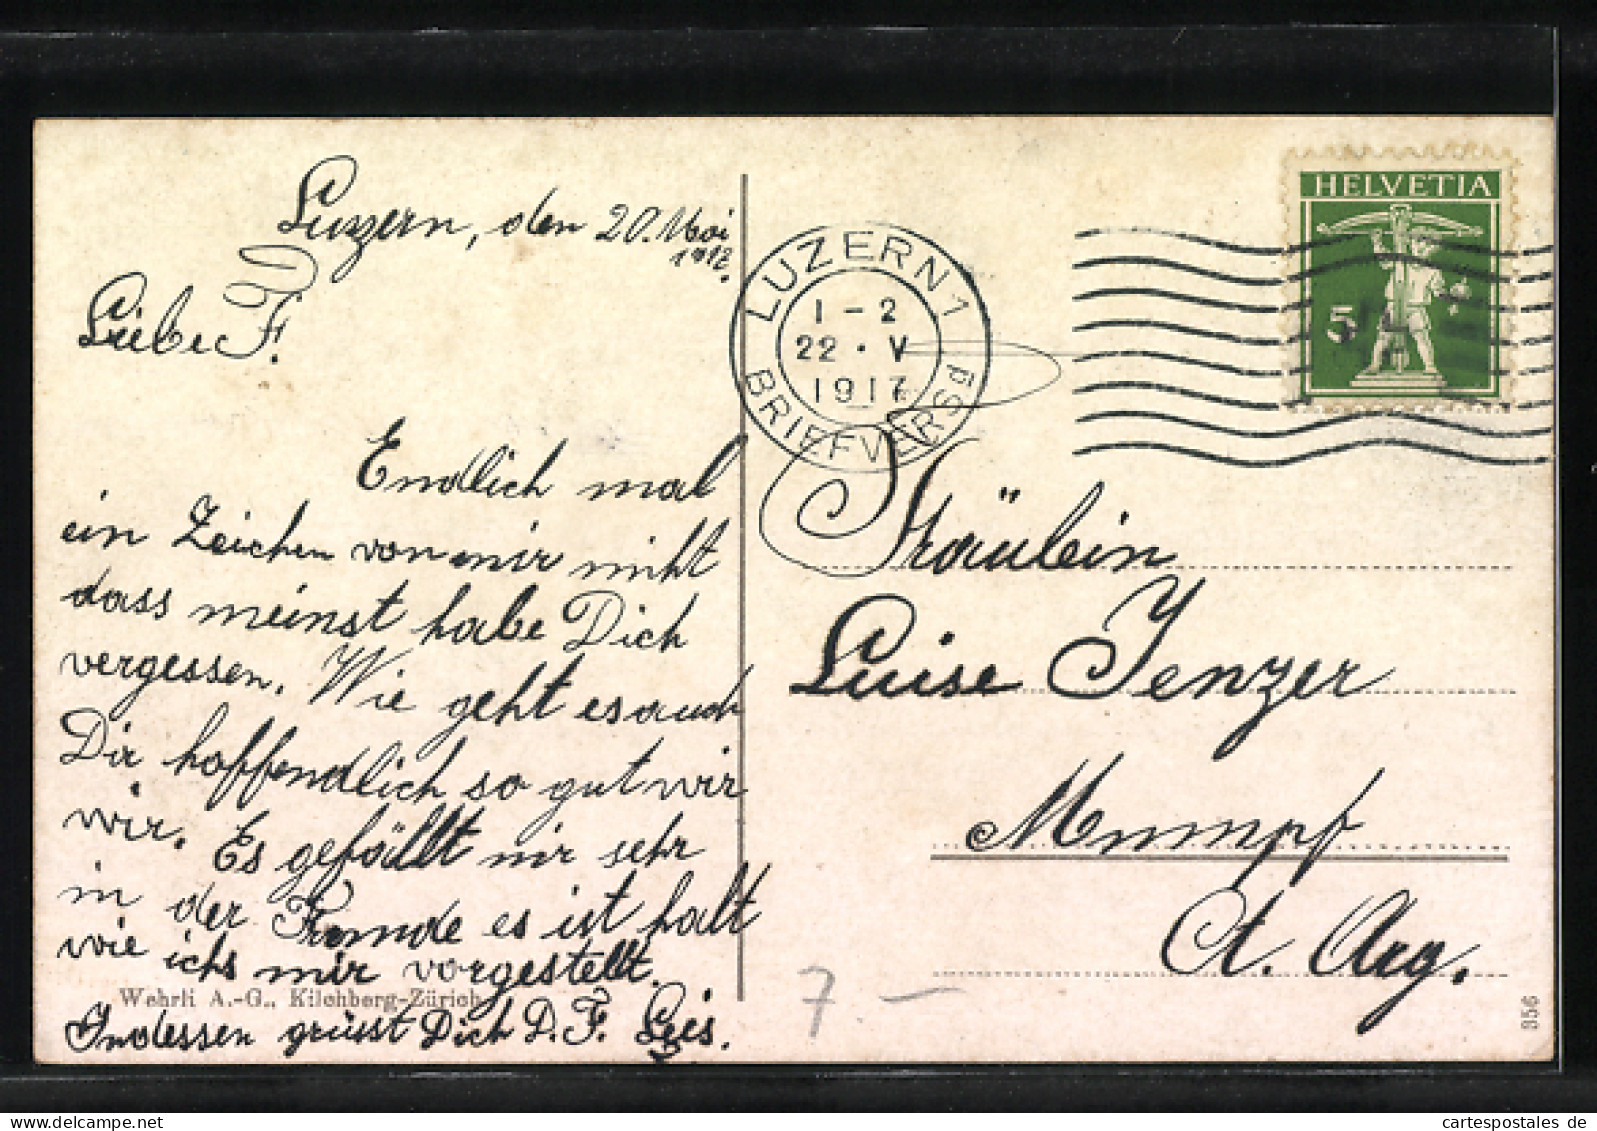 Luzern, den 20. Mai
1917.
Liebe F.
Endlich mal
ein Zeichen von mir nicht
dass meinst habe Dich
vergessen. Wie geht es auch
Dir hoffendlich so gut wir
wir. Es gefällt mir sehr
in der Fremde es ist halt
wie ichs mir vorgestellt.
Wehrli A.-G., Kilchberg-Zürich
Indessen grüsst Dich D. F. Leis.
LUZERN 1
1-2
22 · V
1917
BRIEFVERSD
HELVETIA
5
Fräulein
Luise Jenzer
Mumpf
Ct. Arg.
7 —
356
cartespostales de